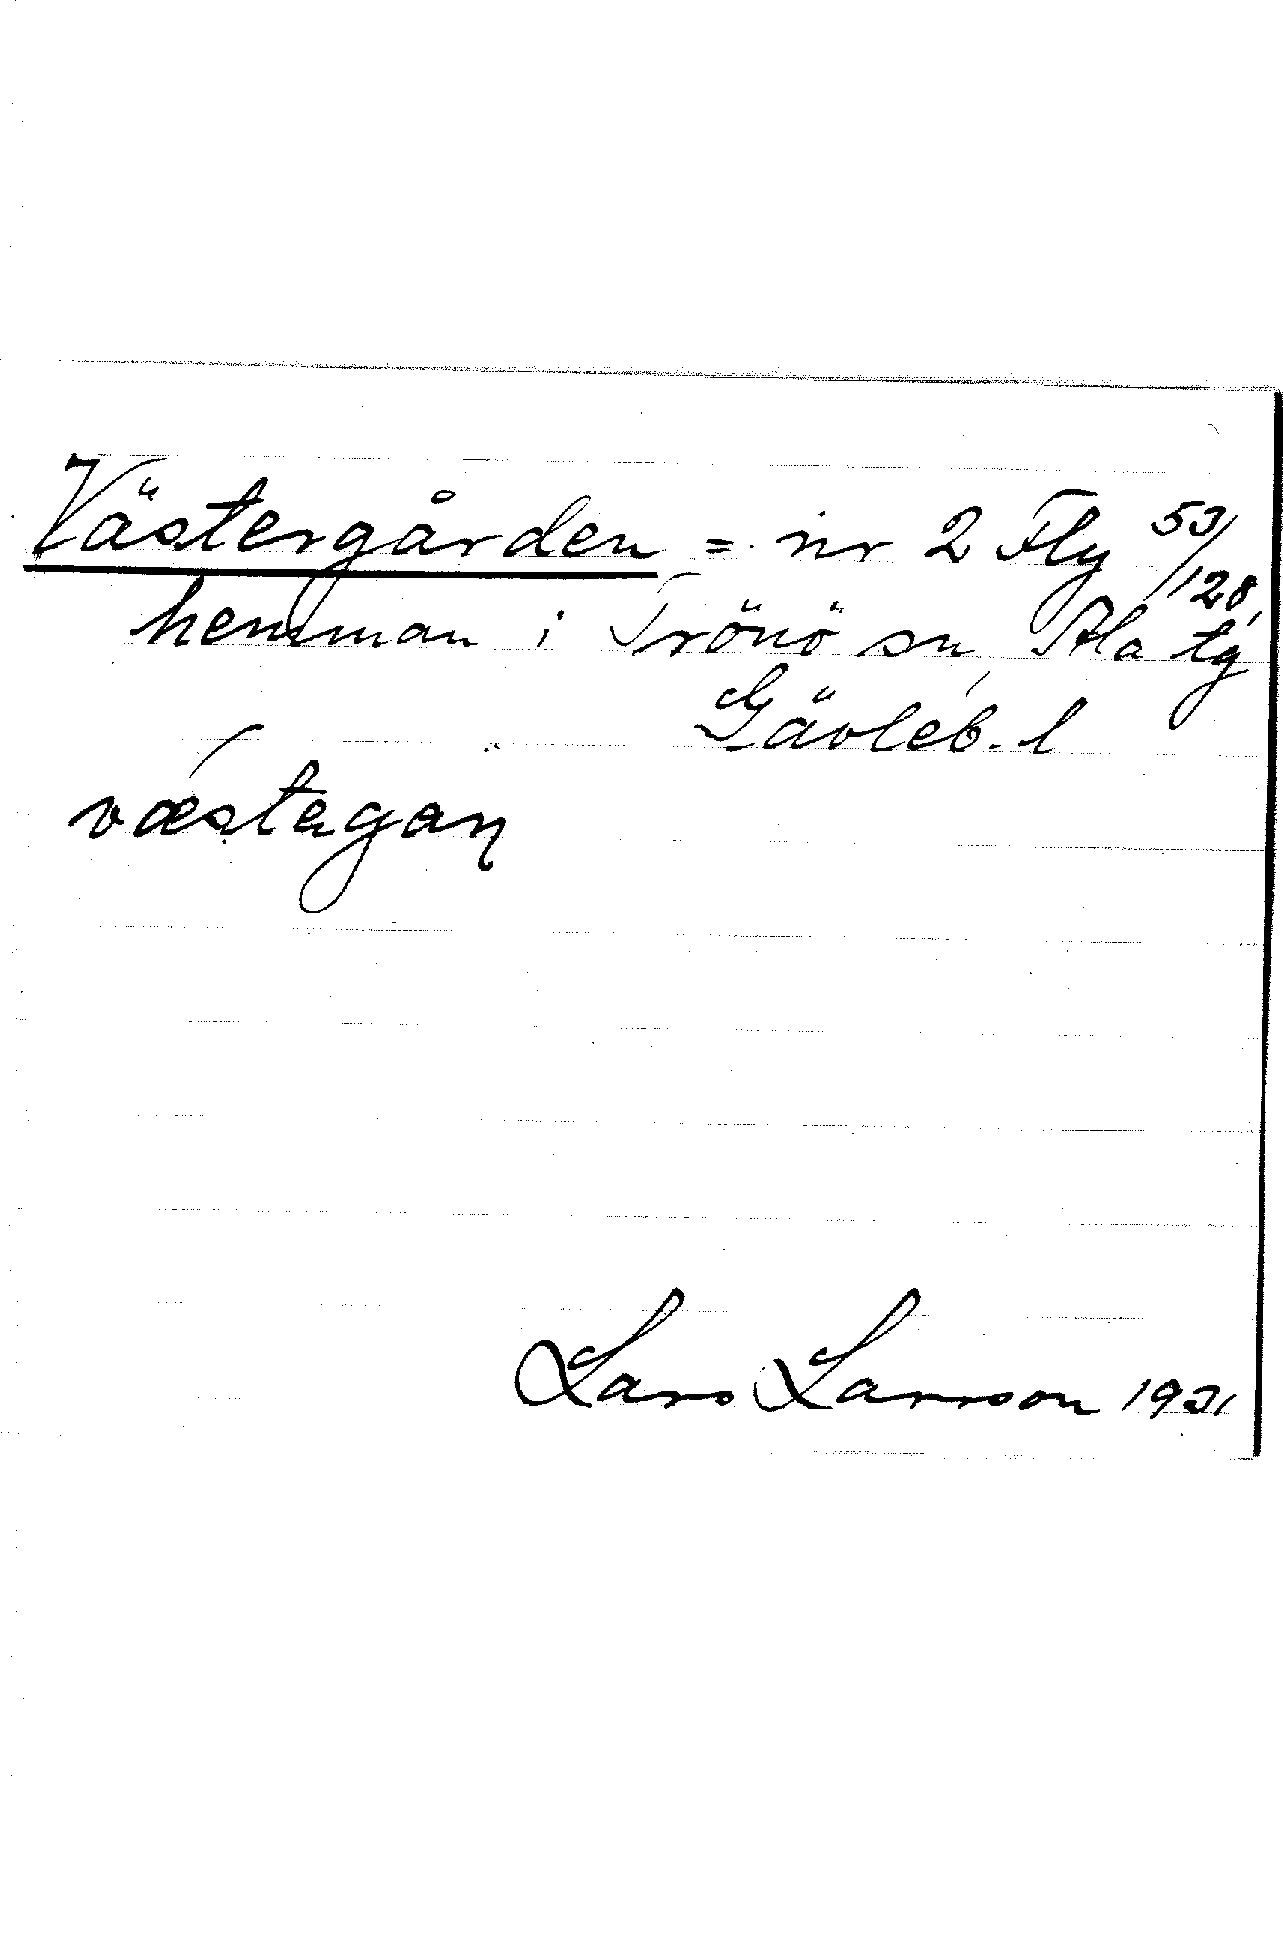 Västergården = nr 2 Fly 53/128
hemman i Trönö sn, Ala tg
Gävleb. l
væstagaɳ
Lars Larsson 1931